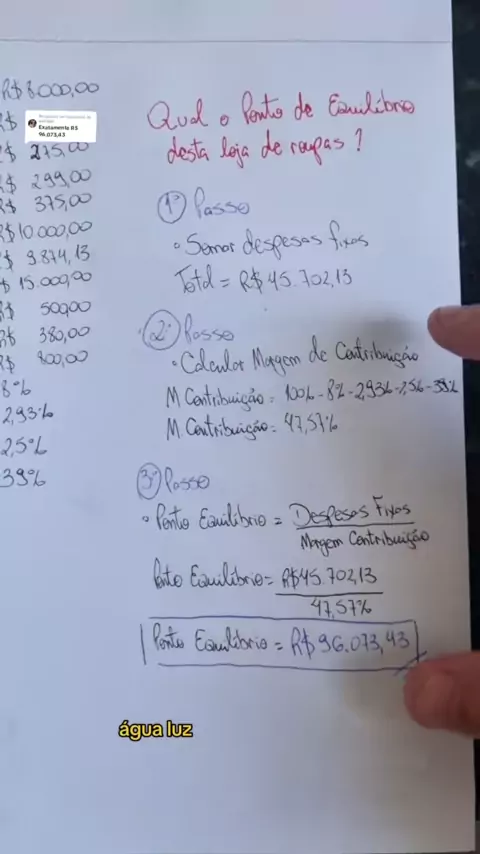 R$ 8.000,00
R$
Exatamente R$
96.073,43
R$ 275,00
R$ 299,00
R$ 375,00
R$ 10.000,00
R$ 9.874,13
R$ 15.000,00
R$ 500,00
R$ 380,00
R$ 800,00
8%
2,93%
2,5%
39%
Qual o Ponto de Equilíbrio
desta loja de roupas?
1º Passo
• Somar despesas fixas
Total = R$ 45.702,13
2º Passo
• Calcular Margem de Contribuição
M Contribuição = 100% - 8% - 2,93% - 2,5% - 39%
M. Contribuição = 47,57%
3º Passo
• Ponto Equilíbrio = Despesas Fixas
Margem Contribuição
Ponto Equilíbrio = R$ 45.702,13
47,57%
Ponto Equilíbrio = R$ 96.073,43
água luz